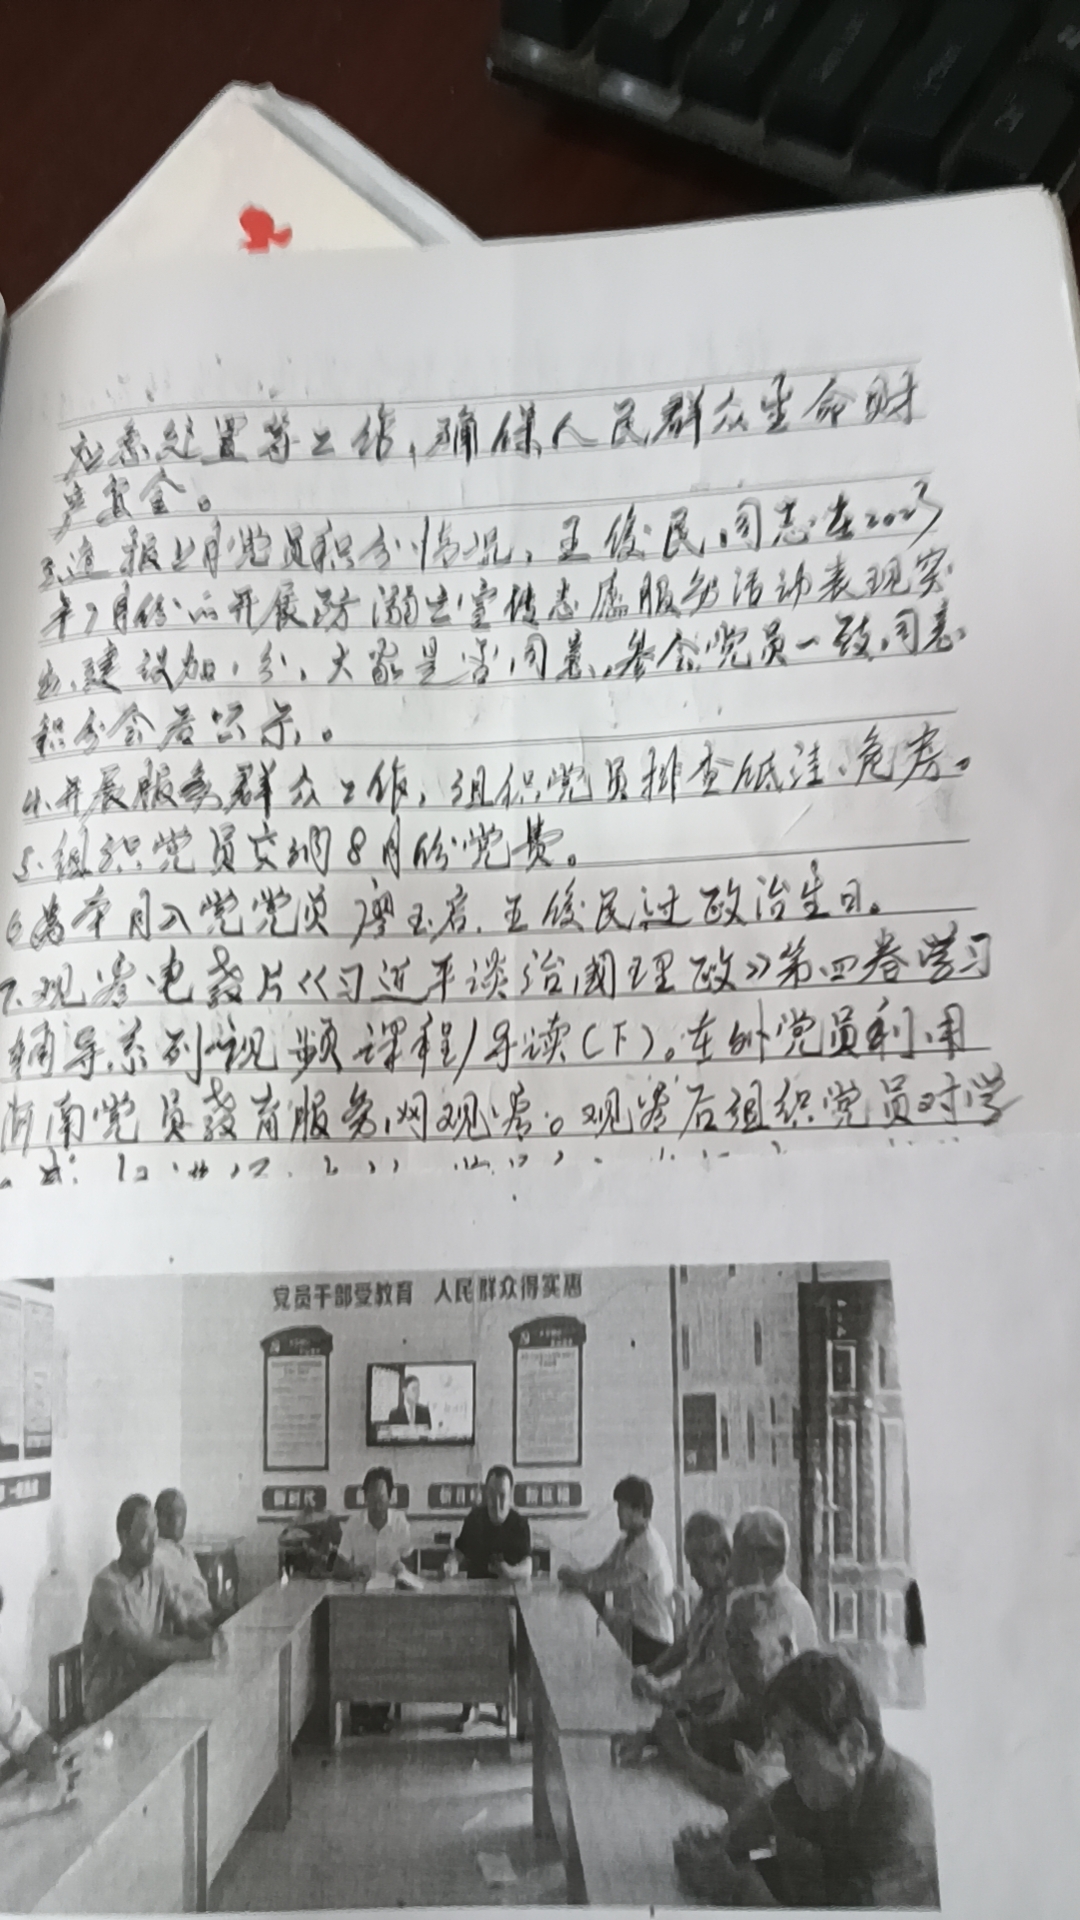 应急处置等工作,确保人民群众生命财
产安全。
3.通报上月党员积分情况,王俊民同志在2023
年7月份的开展防溺水宣传志愿服务活动表现突
出,建议加1分,大家是否同意。参会党员一致同意,
积分会后公示。
4.开展服务群众工作,组织党员排查低洼、危房。
5.组织党员交纳8月份党费。
6.为本月入党党员廖玉君、王俊民过政治生日。
7.观看电教片《习近平谈治国理政》第四卷学习
辅导系列视频课程/导读(下)。在外党员利用
河南党员教育服务网观看。观看后组织党员对学
党员干部受教育 人民群众得实惠
新时代